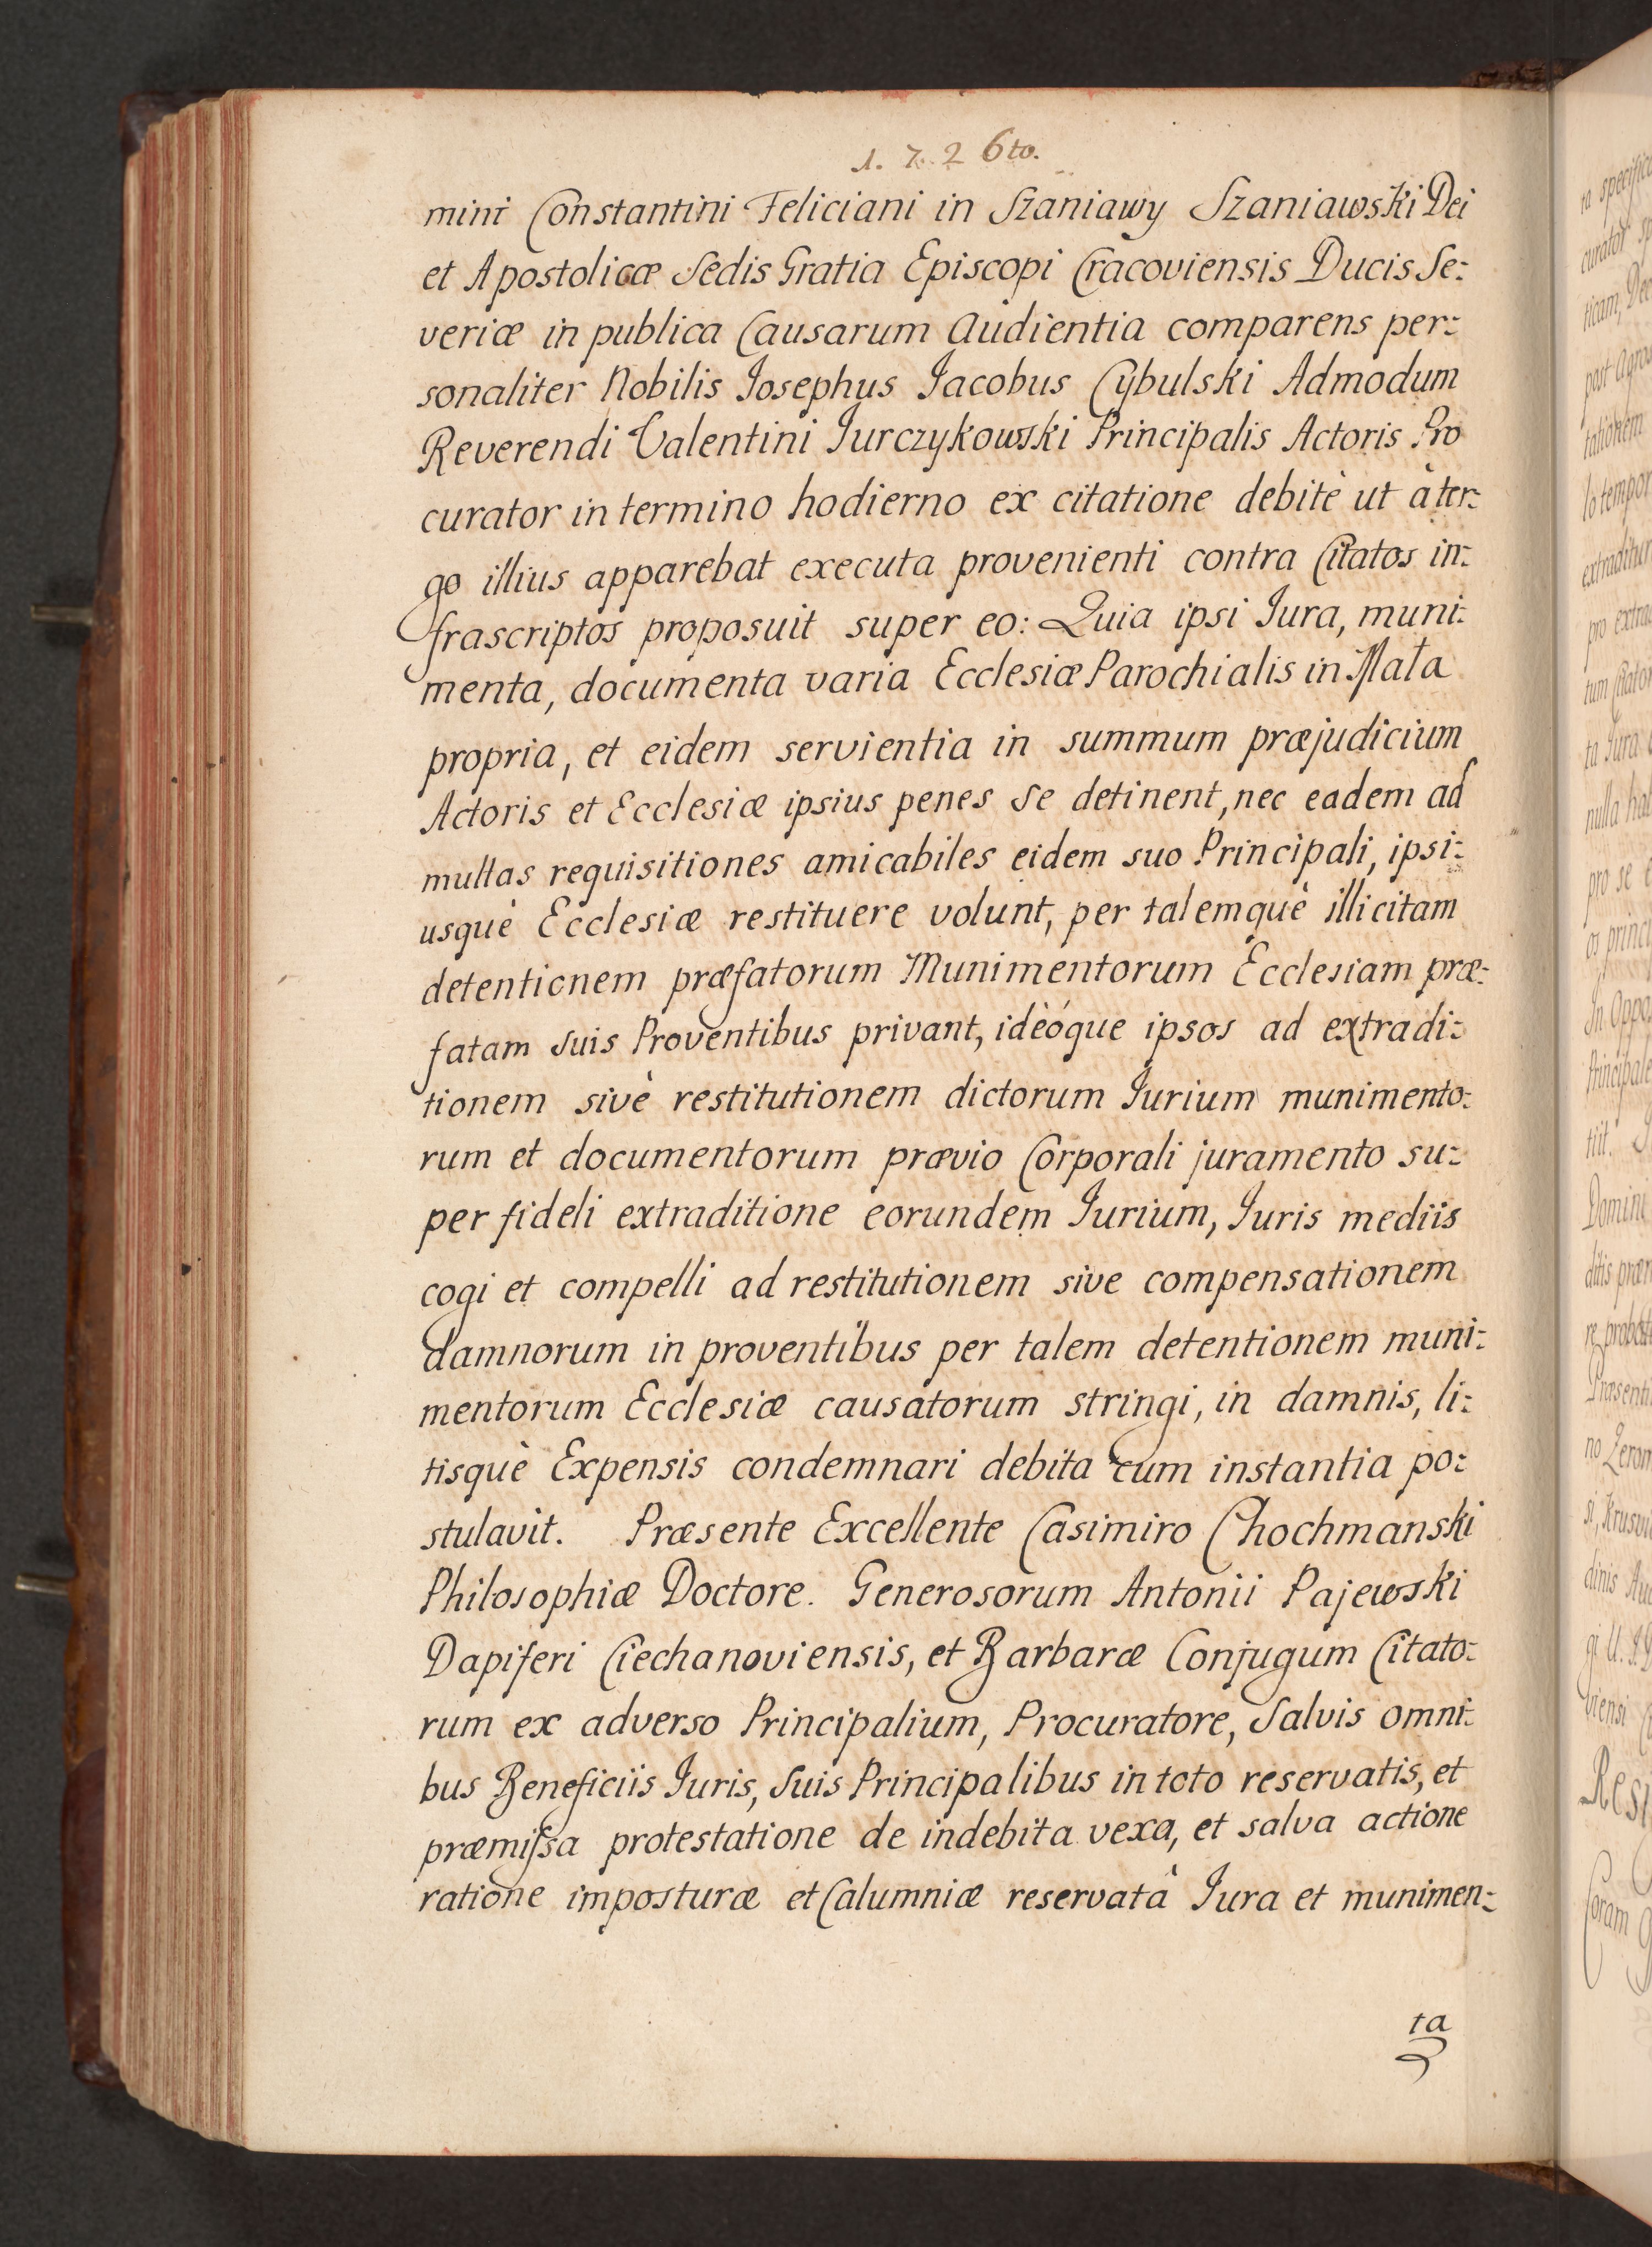 1. 7. 2 6to.
mini Constantini Feliciani in Szaniawy Szaniawski Dei
et Apostolicæ Sedis Gratia Episcopi Cracoviensis Ducis Se:
veriæ in publica Causarum Audientia comparens per:
sonaliter Nobilis Iosephus Iacobus Cybulski Admodum
Reverendi Valentini Iurczykowski Principalis Actoris Pro
curator in termino hodierno ex citatione debitè ut à ter:
go illius apparebat executa provenienti contra Citatos in:
frascriptos proposuit super eo: Quia ipsi Iura, muni:
menta, documenta varia Ecclesiæ Parochialis in Mała
propria, et eidem servientia in summum præjudicium
Actoris et Ecclesiæ ipsius penes se detinent, nec eadem ad
multas requisitiones amicabiles eidem suo Principali, ipsi:
usquè Ecclesiæ restituere volunt, per talemquè illicitam
detentionem præfatorum Munimentorum Ecclesiam præ:
fatam suis Proventibus privant, idèóque ipsos ad extradi:
tionem sivè restitutionem dictorum Iurium munimento:
rum et documentorum prævio Corporali juramento su:
per fideli extraditione eorundem Iurium, Iuris mediis
cogi et compelli ad restitutionem sive compensationem
damnorum in proventibus per talem detentionem muni:
mentorum Ecclesiæ causatorum stringi, in damnis, li:
tisquè Expensis condemnari debita cum instantia po:
stulavit. Præsente Excellente Casimiro Chochmanski
Philosophiæ Doctore. Generosorum Antonii Pajewski
Dapiferi Ciechanoviensis, et Barbaræ Conjugum Citato:
rum ex adverso Principalium, Procuratore, Salvis omni:
bus Beneficiis Iuris, suis Principalibus in toto reservatis, et
præmissa protestatione de indebita vexa, et salva actione
ratione imposturæ et Calumniæ reservatà Iura et munimen:
ta